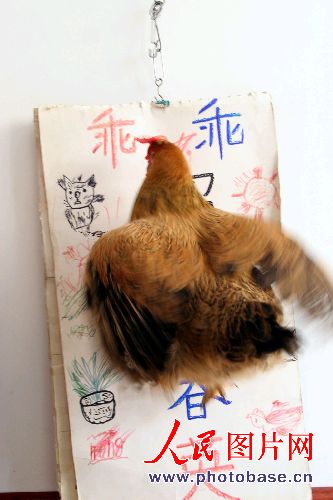 乖 乖
英
人民图片网
www.photobase.cn